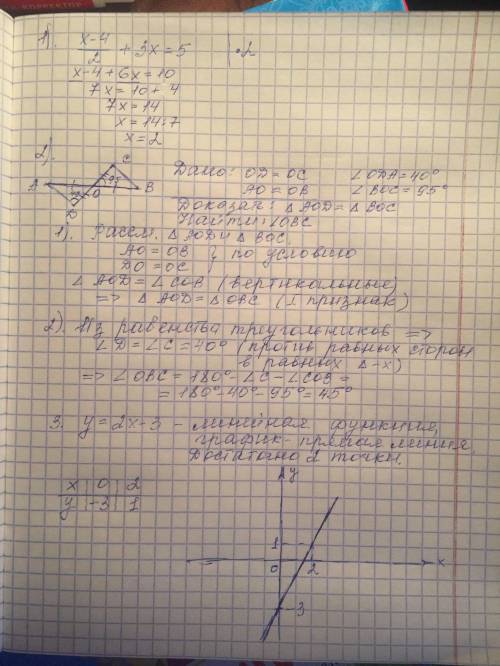 1). x-4/2 + 3x = 5 | · 2
x-4+6x=10
7x = 10+ 4
7x = 14
x = 14:7
x = 2
2).
A B C D O 95
Дано: OD = OC ∠ODA=40°
AO = OB ∠BOC = 95°
Доказат: △AOD = △BOC
Найти: ∠OBC
1). Рассм. △AOD и △BOC.
AO = OB } по условию
DO = OC
∠AOD = ∠COB (вертикальные)
=> △AOD = △OBC (I признак)
2). Из равенства треугольников =>
∠D = ∠C = 40° (против равных сторон
в равных △-х)
=> ∠OBC = 180° - ∠C - ∠COB =
= 180°-40°-95°=45°
3. y = 2x-3 - линейная функция,
график - прямая линия
Достаточно 2 точки.
x | 0 | 2
y | -3 | 1
y
1
0 2 x
-3